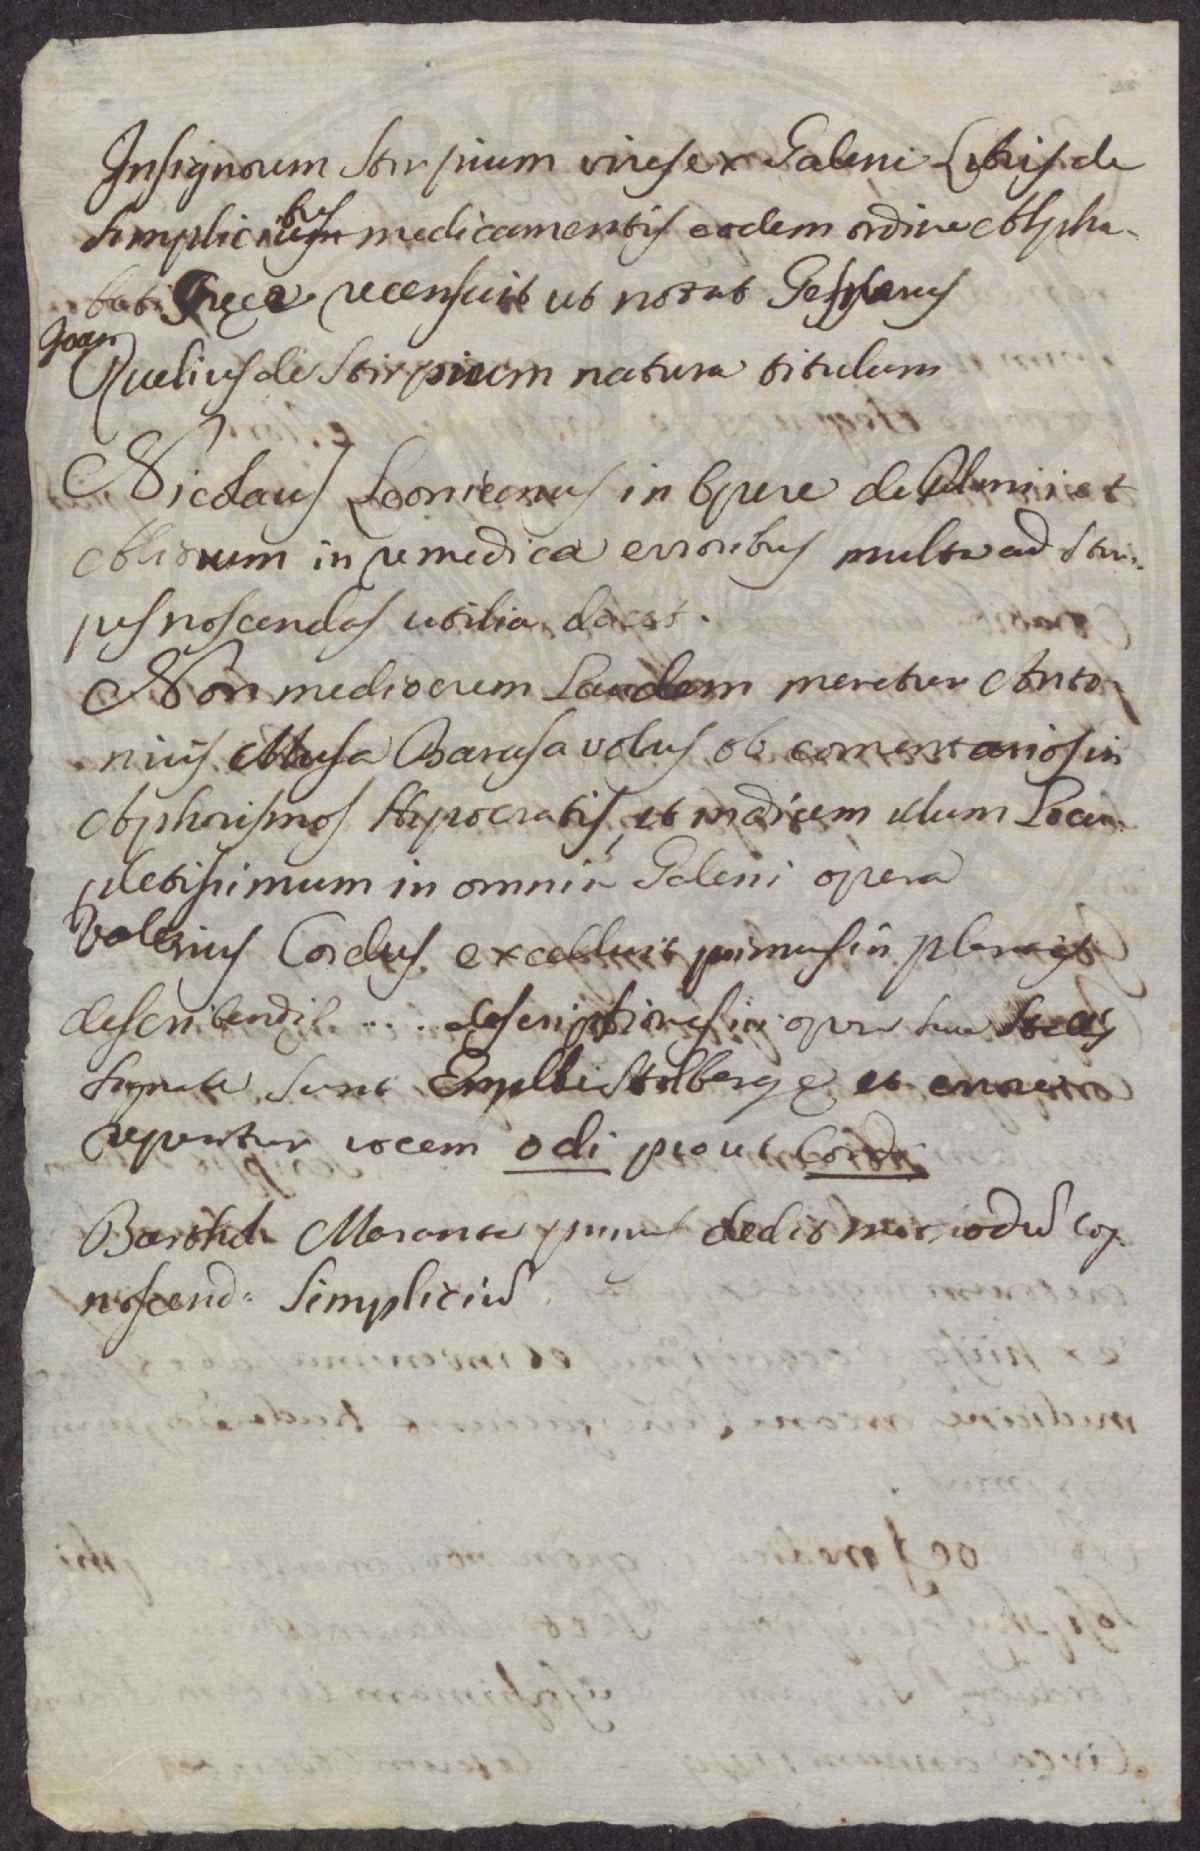 Insignorum Stirpium vires ex Galeni Libris de
simplicibus medicamentis eodem ordine Alpha-
bet: Grece recensuit ut notat Gessnerus
Joan
Ruelius de Stirpium natura titulum
Nicolaus Leonicenus in opere de Plinii et
Aliorum in re medica erroribus multa ad Stir-
pes noscendas utilia docet.
Non mediocrem Laudem meretur Anto-
nius Musa Barasavolus ob comentarios in
Aphorismos Hypocratis, et indicem illum Locu-
pletissimum in omnia Galeni opera
Valerius Cordus excelluit primus in plantis
describendis .... descriptiones in opere suo
signate sunt Stilberge et
reperitur vocem odi prout Cordi
Barthol. Maranta primus dedit methodū cog-
noscend: Simpliciū